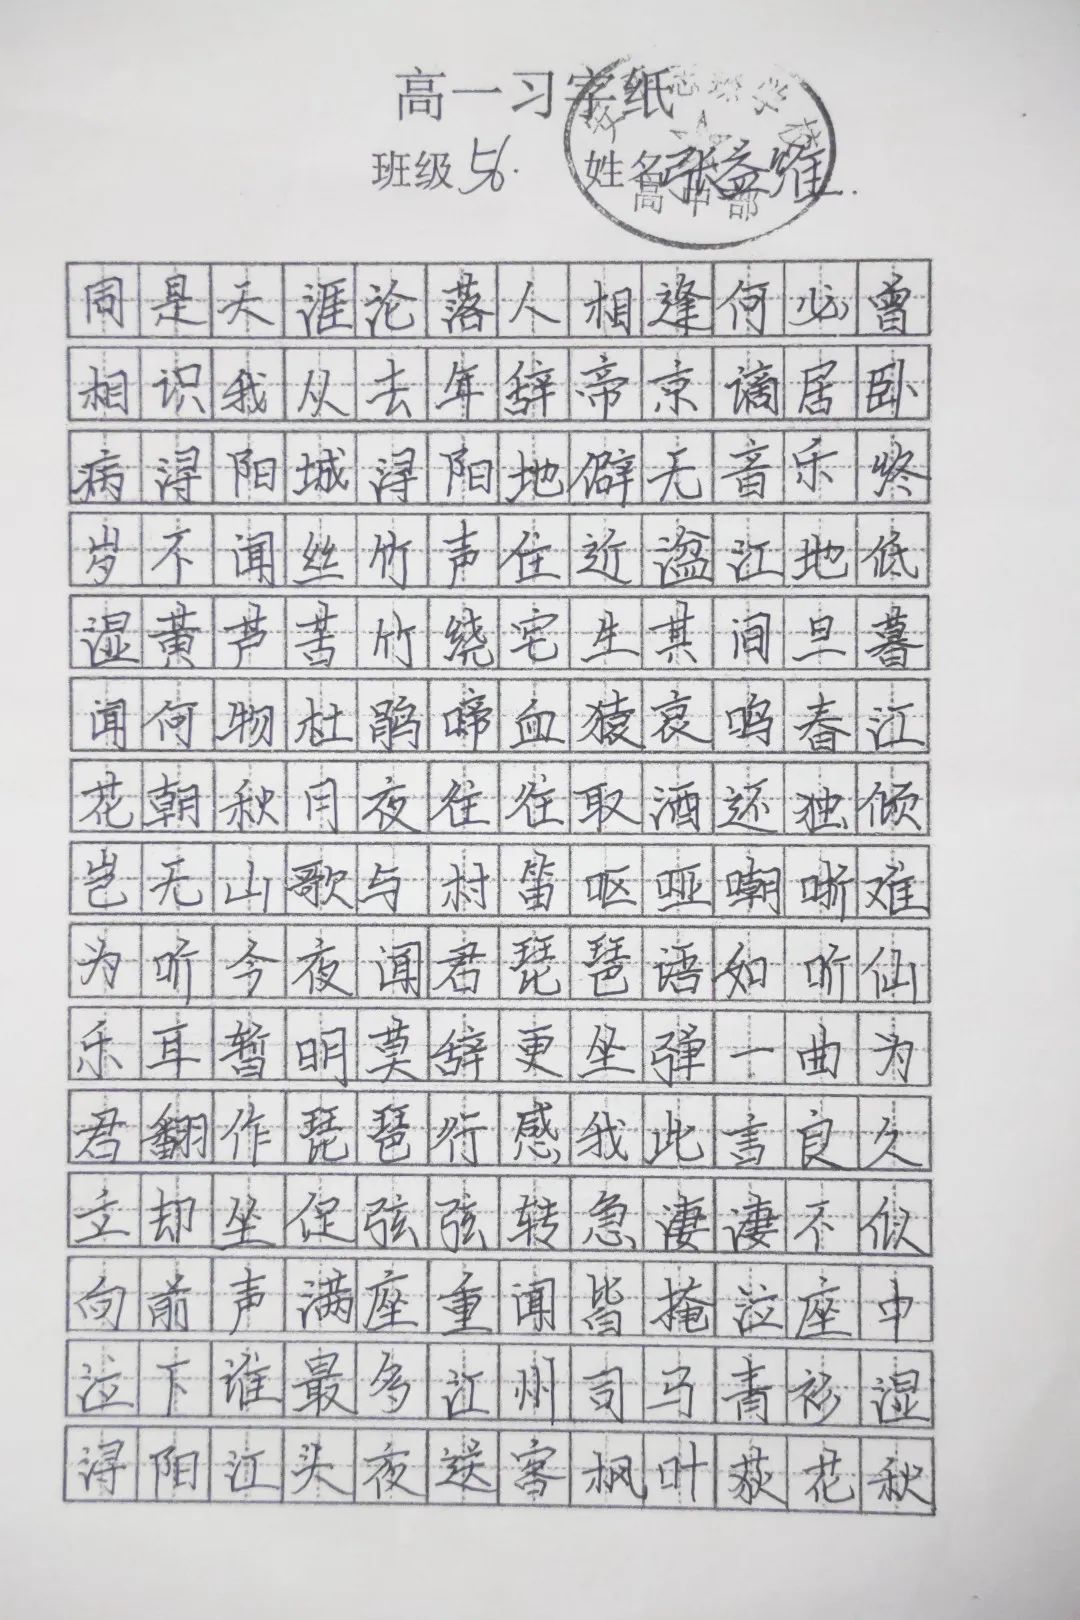 高一习字纸
班级 56. 姓名 张益
高中部
同是天涯沦落人相逢何必曾
相识我从去年辞帝京谪居卧
病浔阳城浔阳地僻无音乐终
岁不闻丝竹声住近湓江地低
湿黄芦苦竹绕宅生其间旦暮
闻何物杜鹃啼血猿哀鸣春江
花朝秋月夜往往取酒还独倾
岂无山歌与村笛呕哑嘲哳难
为听今夜闻君琵琶语如听仙
乐耳暂明莫辞更坐弹一曲为
君翻作琵琶行感我此言良久
立却坐促弦弦转急凄凄不似
向前声满座重闻皆掩泣座中
泣下谁最多江州司马青衫湿
浔阳江头夜送客枫叶荻花秋